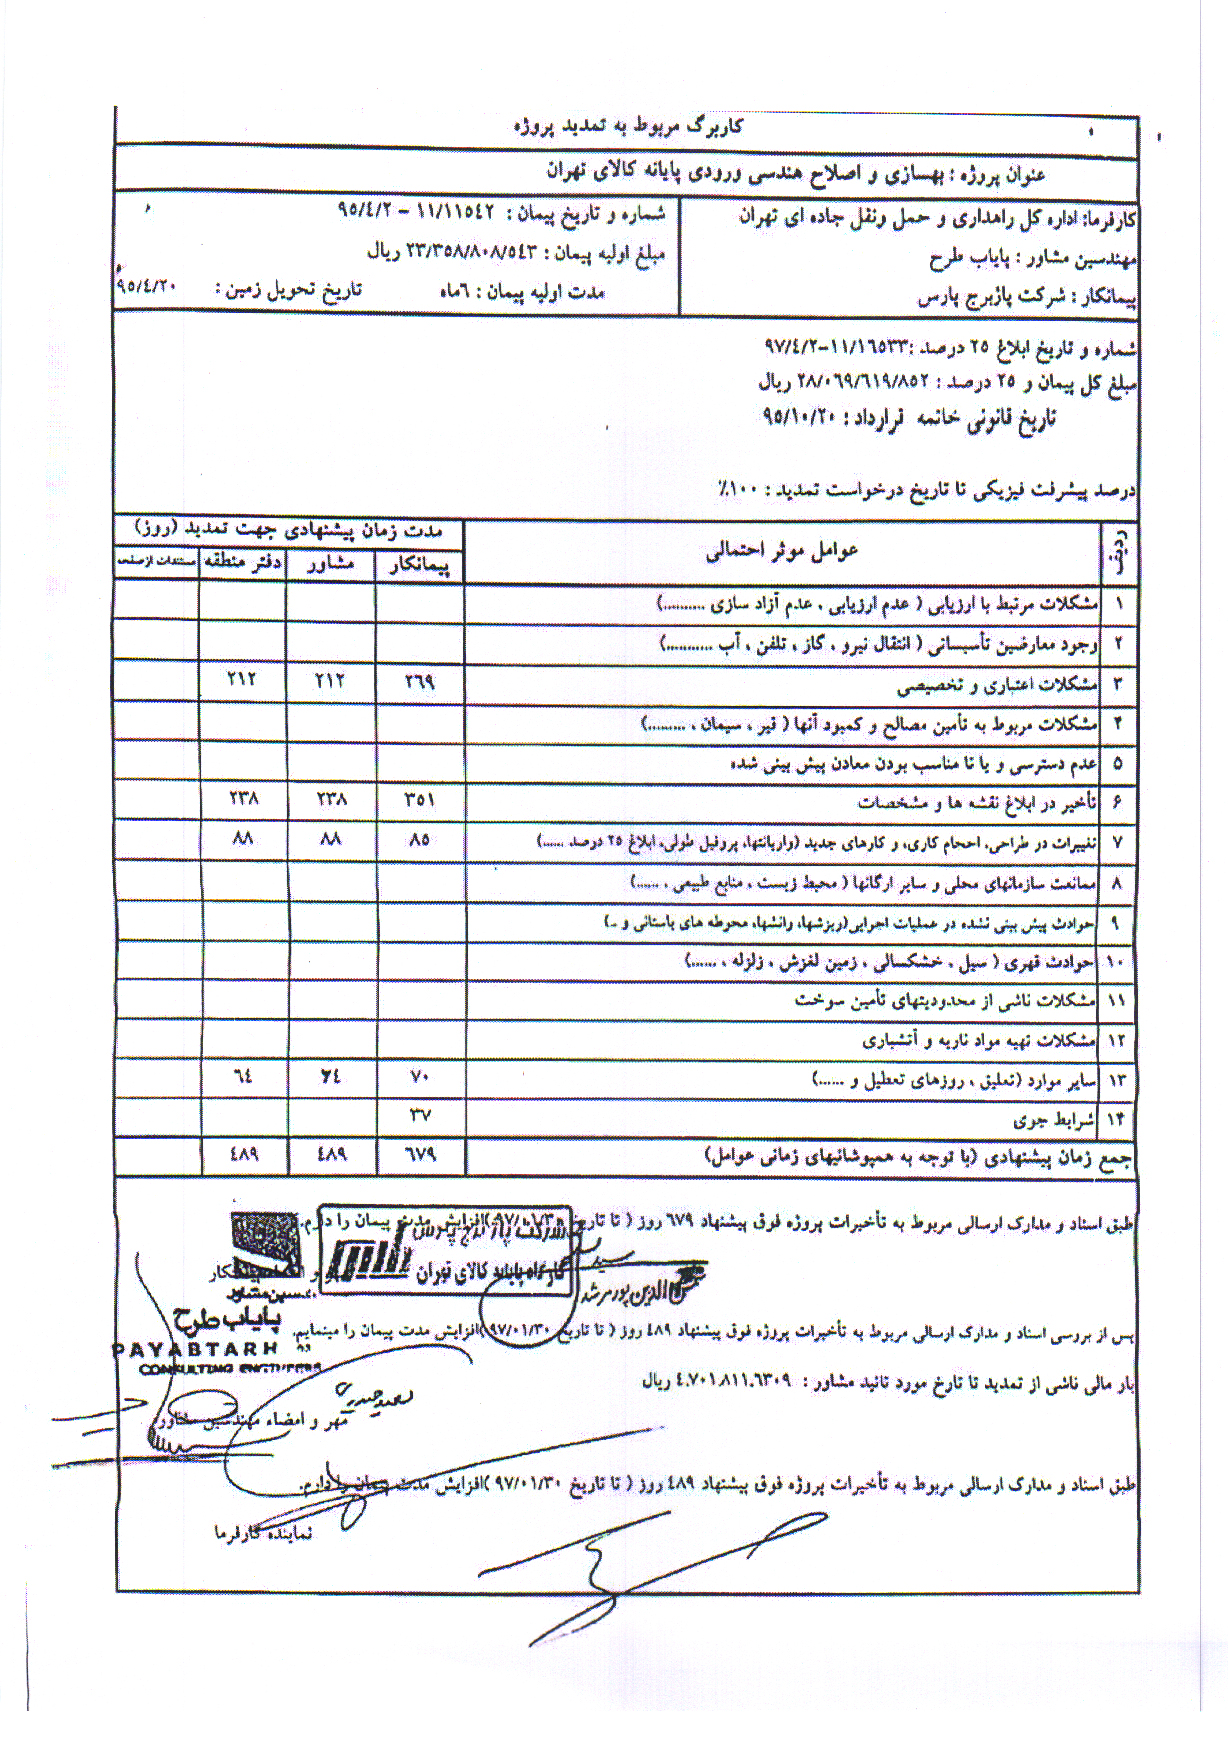 کاربرگ مربوط به تمدید پروژه
عنوان پروژه : بهسازی و اصلاح هندسی ورودی پایانه کالای تهران
کارفرما: اداره کل راهداری و حمل ونقل جاده ای تهران
مهندسین مشاور : پایاب طرح
پیمانکار : شرکت پاژبرج پارس
شماره و تاریخ پیمان : ۱۱/۱۱۵۴۲ – ۹۵/۴/۲
مبلغ اولیه پیمان : ۲۳/۳۵۸/۸۰۸/۵۴۳ ریال
مدت اولیه پیمان : ۶ماه تاریخ تحویل زمین : ۹۵/٤/۲۰
شماره و تاریخ ابلاغ ۲۵ درصد :۱۱/۱۶۵۳۳-۹۷/٤/۲
مبلغ کل پیمان و ۲۵ درصد : ۲۸/۰۶۹/۶۱۹/۸۵۲ ریال
تاریخ قانونی خاتمه قرارداد : ۹۵/۱۰/۲۰
درصد پیشرفت فیزیکی تا تاریخ درخواست تمدید : ۱۰۰٪
ردیف عوامل موثر احتمالی مدت زمان پیشنهادی جهت تمدید (روز)
پیمانکار مشاور دفتر منطقه مستندات ازصفحه
۱ مشکلات مرتبط با ارزیابی ( عدم ارزیابی ، عدم آزاد سازی ..........)
۲ وجود معارضین تأسیساتی ( انتقال نیرو ، گاز ، تلفن ، آب ...........)
۳ مشکلات اعتباری و تخصیصی ۲۶۹ ۲۱۲ ۲۱۲
۴ مشکلات مربوط به تأمین مصالح و کمبود آنها ( قیر ، سیمان ، .........)
۵ عدم دسترسی و یا نا مناسب بودن معادن پیش بینی شده
۶ تأخیر در ابلاغ نقشه ها و مشخصات ۳۵۱ ۲۳۸ ۲۳۸
۷ تغییرات در طراحی، احجام کاری، و کارهای جدید (واریانتها، پروفیل طولی، ابلاغ ۲۵ درصد ......) ۸۵ ۸۸ ۸۸
۸ ممانعت سازمانهای محلی و سایر ارگانها ( محیط زیست ، منابع طبیعی ، ......)
۹ حوادث پیش بینی نشده در عملیات اجرایی(ریزشها، رانشها، محوطه های باستانی و ..)
۱۰ حوادث قهری ( سیل ، خشکسالی ، زمین لغزش ، زلزله ، ......)
۱۱ مشکلات ناشی از محدودیتهای تأمین سوخت
۱۲ مشکلات تهیه مواد ناریه و آتشباری
۱۳ سایر موارد (تعلیق ، روزهای تعطیل و ......) ۷۰ ٦٤
۱۴ شرایط جوی ۳۷
جمع زمان پیشنهادی (با توجه به همپوشانیهای زمانی عوامل) ٦٧٩ ٤٨٩ ٤٨٩
طبق اسناد و مدارک ارسالی مربوط به تأخیرات پروژه فوق پیشنهاد ٦٧٩ روز ( تا تاریخ ۹۷/۰۱/۳۰ )افزایش مدت پیمان را دارم.
کارگاه پایانه کالای تهران
پایاب طرح
PAYABTARH
CONSULTING ENGINEERS
پس از بررسی اسناد و مدارک ارسالی مربوط به تأخیرات پروژه فوق پیشنهاد ٤٨٩ روز ( تا تاریخ ۹۷/۰۱/۳۰ )افزایش مدت پیمان را مینمایم.
بار مالی ناشی از تمدید تا تارخ مورد تائید مشاور : ٤.٧٠١.٨١١.٦٣٠٩ ریال
مهر و امضاء مهندسین مشاور
طبق اسناد و مدارک ارسالی مربوط به تأخیرات پروژه فوق پیشنهاد ٤٨٩ روز ( تا تاریخ ۹۷/۰۱/۳۰ )افزایش مدت پیمان را دارم.
نماینده کارفرما